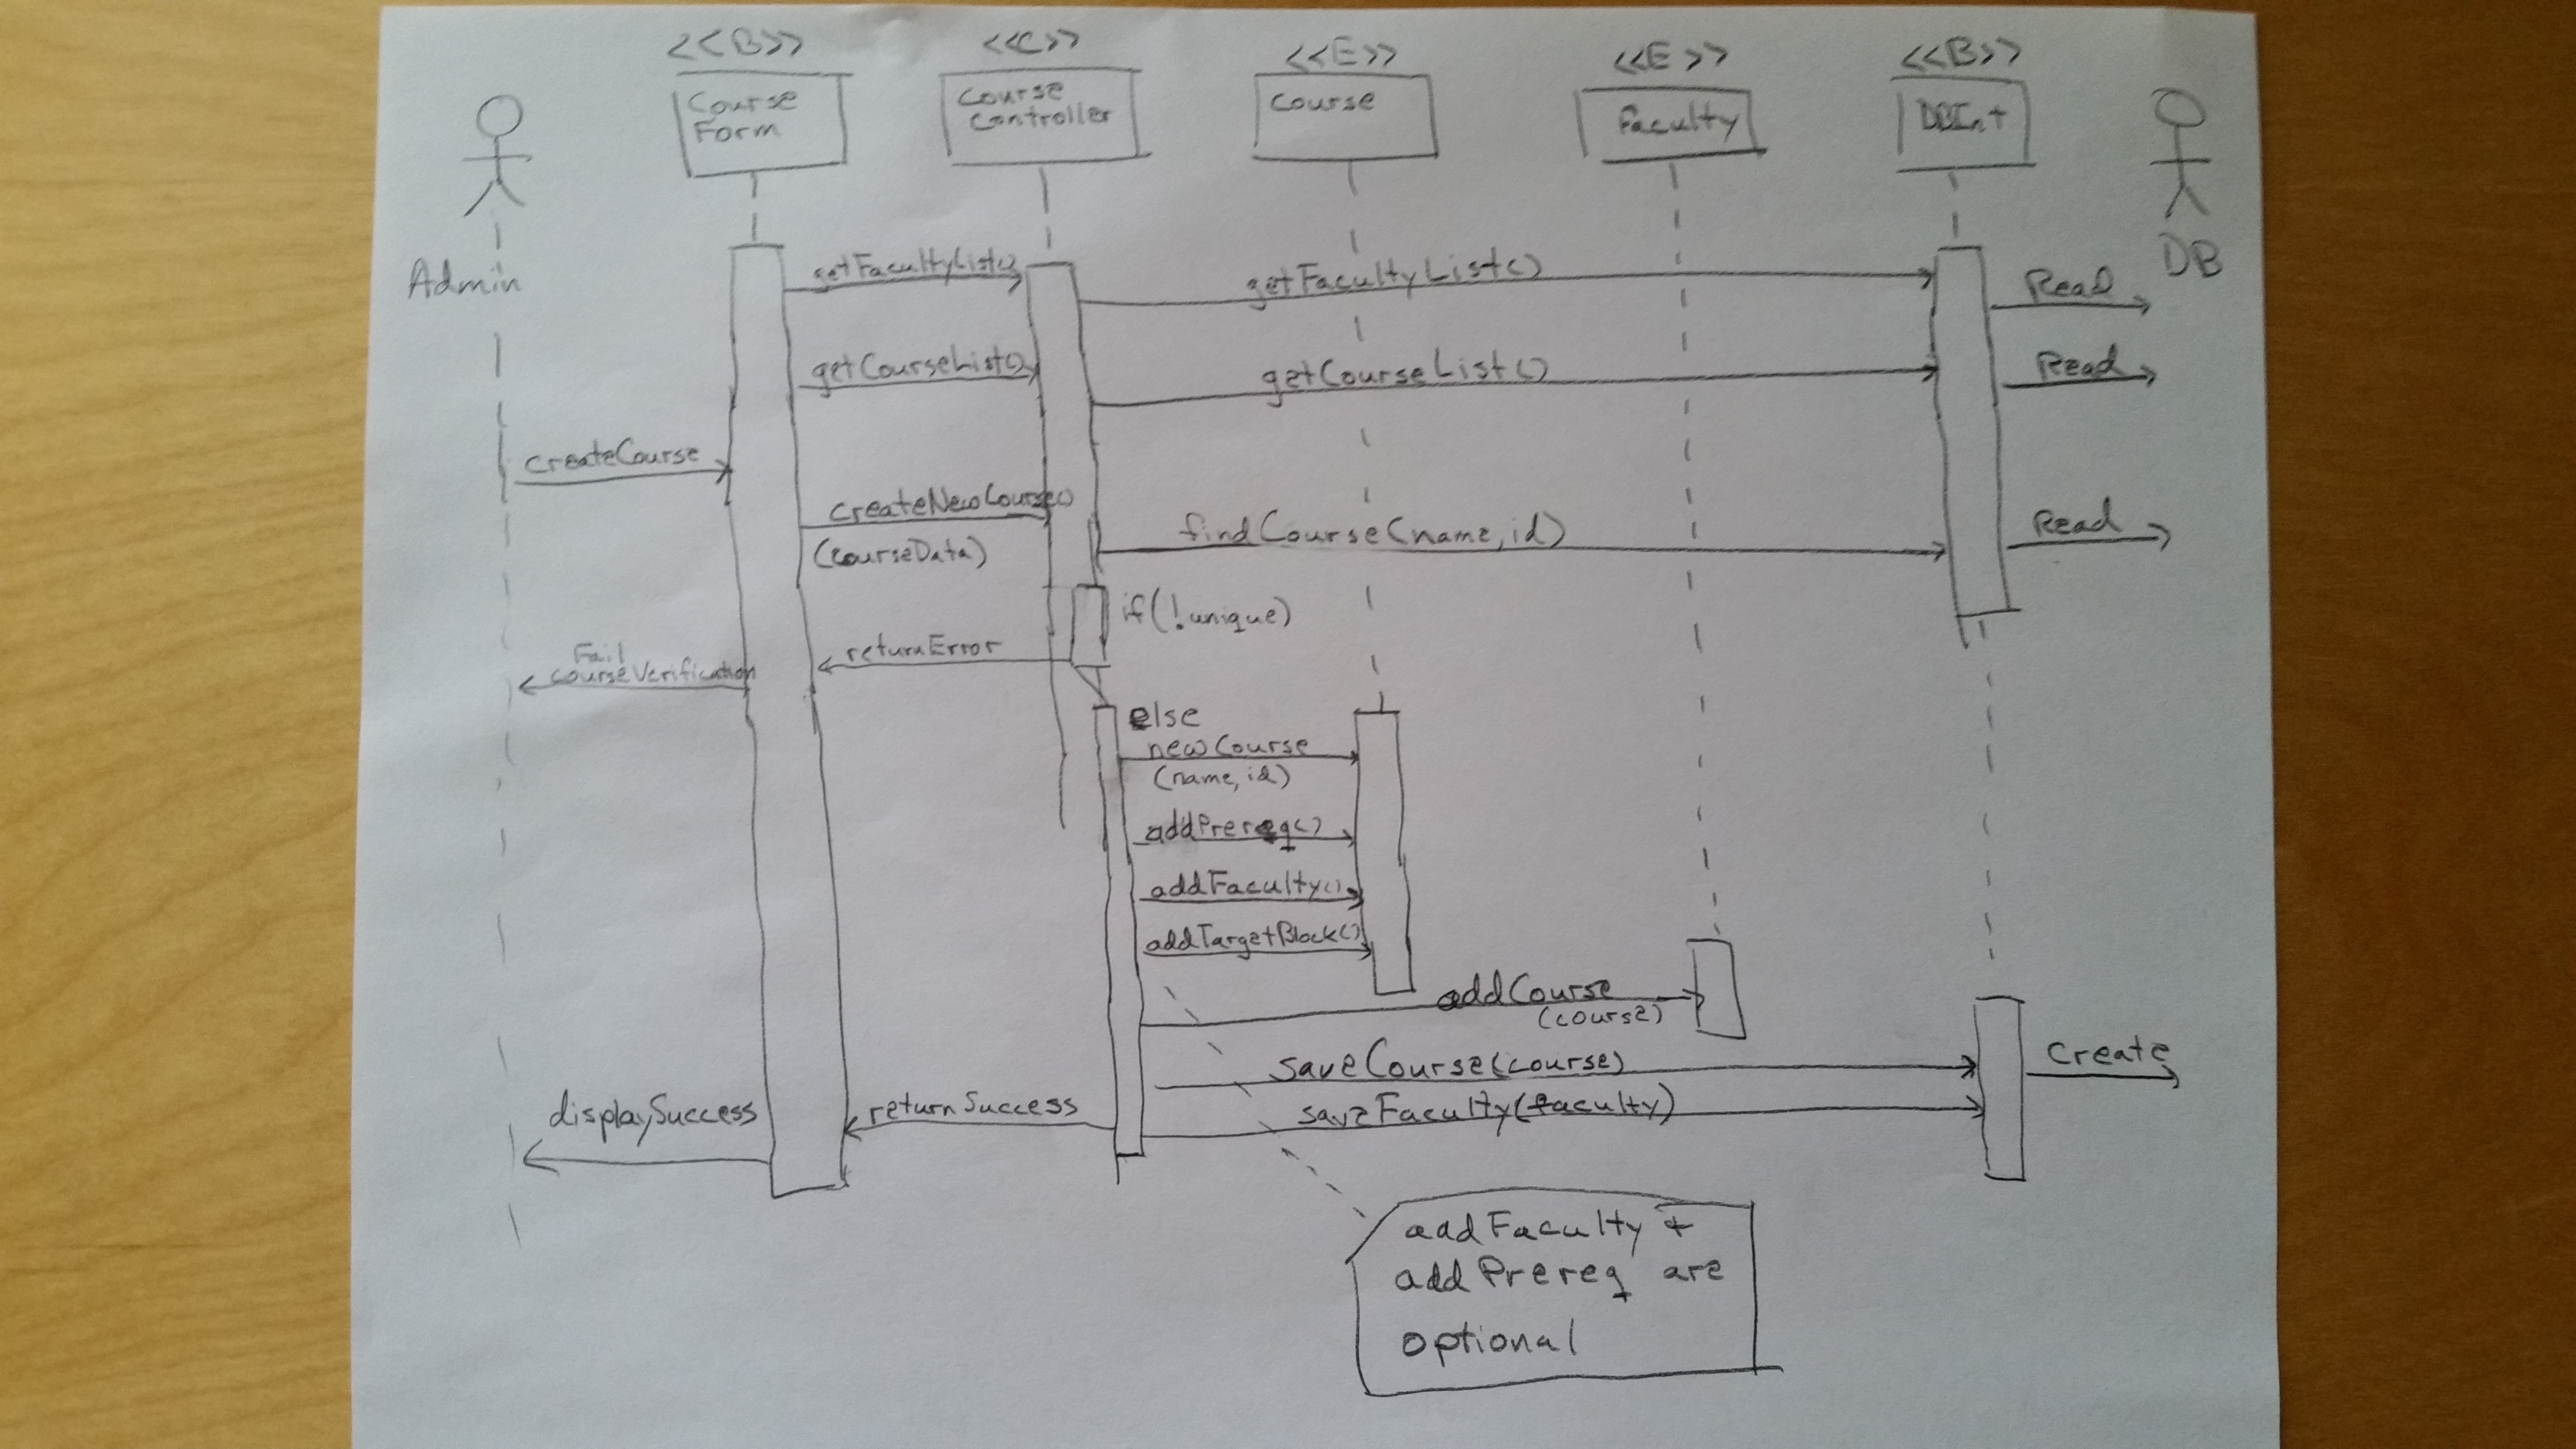 <<B>>
<<C>>
<<E>>
<<E>>
<<B>>
Course
Form
Course
Controller
Course
Faculty
DBInt
Admin
DB
getFacultyList()
getFacultyList()
Read
getCourseList()
getCourseList()
Read
createCourse
createNewCourse()
(courseData)
findCourse(name, id)
Read
if(!unique)
returnError
Fail
courseVerification
else
newCourse
(name, id)
addPrereq()
addFaculty()
addTargetBlock()
addCourse
(course)
saveCourse(course)
Create
displaySuccess
returnSuccess
saveFaculty(faculty)
addFaculty +
addPrereq are
optional